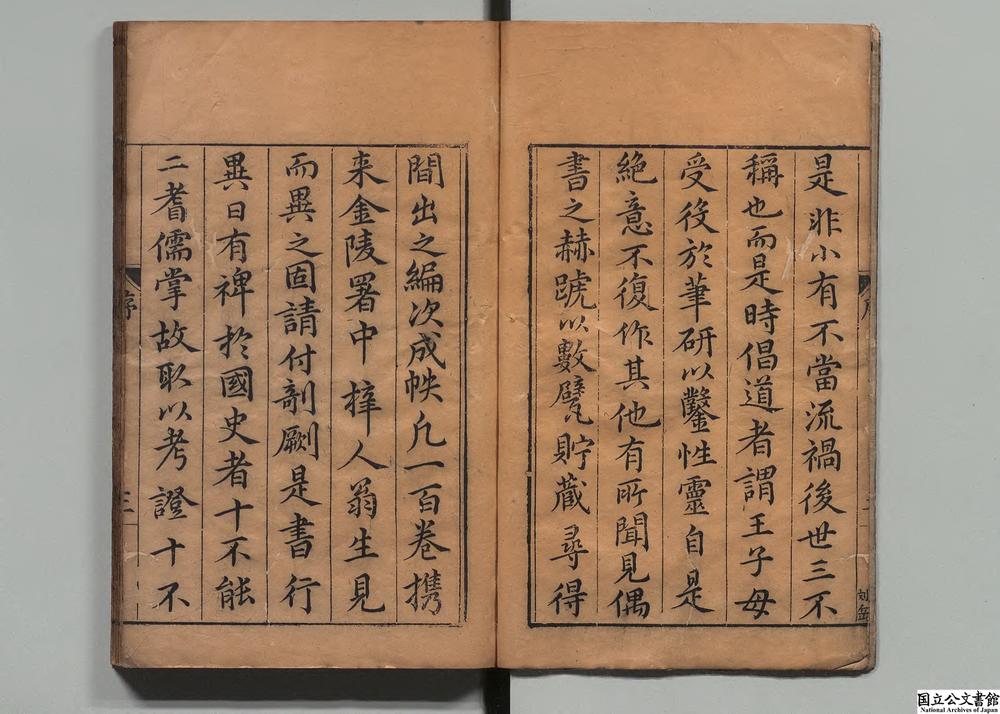 是非小有不當流禍後世三不
稱也而是時倡道者謂王子毋
受役於筆研以鑿性靈自是
絶意不復作其他有所聞見偶
書之赫蹏以數甓貯藏尋得
間出之編次成帙凡一百卷攜
来金陵署中梓人翁生見
而異之固請付剞劂是書行
異日有裨於國史者十不能
二耆儒掌故取以考證十不
序
三
国立公文書館
National Archives of Japan